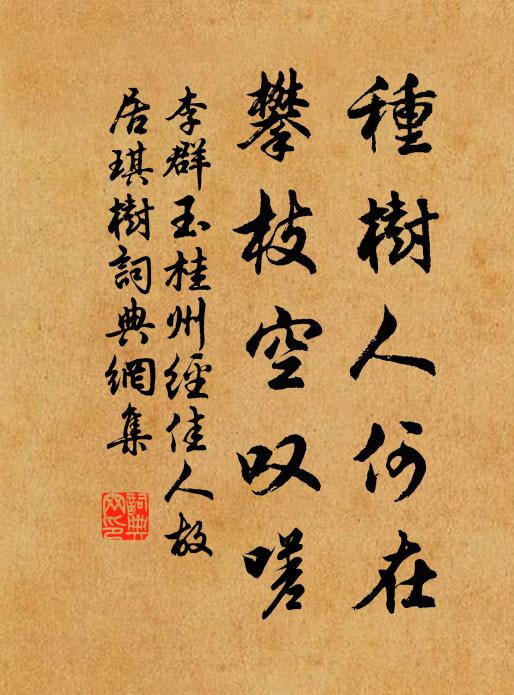 種樹人何在
攀枝空叹嗟
李群玉桂州經佳人故
居琪樹詞典網集
詞典
网印